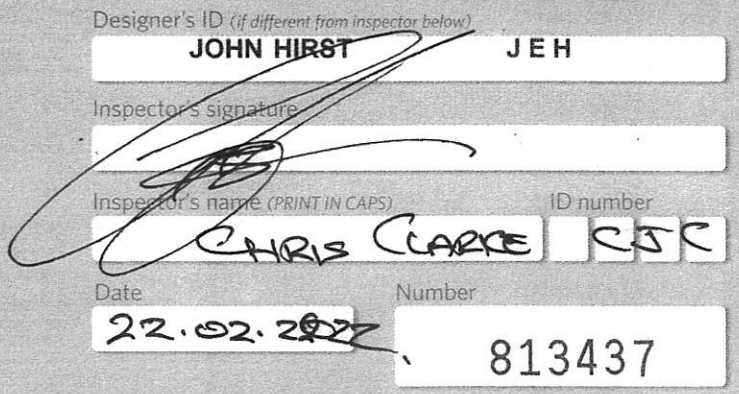 Designer's ID (if different from inspector below)
JOHN HIRST JEH
Inspector's signature
Inspector's name (PRINT IN CAPS) ID number
CHRIS CLARKE CJC
Date Number
22.02.2022 813437